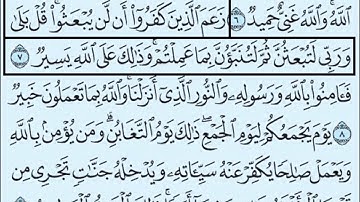 ٱللَّهُ وَٱللَّهُ غَنِىٌّ حَمِيدٌ ٦ زَعَمَ ٱلَّذِينَ كَفَرُوٓا۟ أَن لَّن يُبْعَثُوا۟ قُلْ بَلَىٰ
وَرَبِّى لَتُبْعَثُنَّ ثُمَّ لَتُنَبَّؤُنَّ بِمَا عَمِلْتُمْ وَذَٰلِكَ عَلَى ٱللَّهِ يَسِيرٌ ٧
فَـَٔامِنُوا۟ بِٱللَّهِ وَرَسُولِهِۦ وَٱلنُّورِ ٱلَّذِىٓ أَنزَلْنَا وَٱللَّهُ بِمَا تَعْمَلُونَ خَبِيرٌ
٨ يَوْمَ يَجْمَعُكُمْ لِيَوْمِ ٱلْجَمْعِ ذَٰلِكَ يَوْمُ ٱلتَّغَابُنِ وَمَن يُؤْمِنۢ بِٱللَّهِ
وَيَعْمَلْ صَٰلِحًا يُكَفِّرْ عَنْهُ سَيِّـَٔاتِهِۦ وَيُدْخِلْهُ جَنَّٰتٍ تَجْرِى مِن